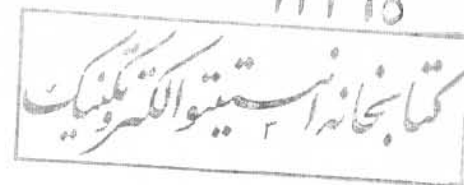 کتابخانه انستیتو الکتروتکنیک